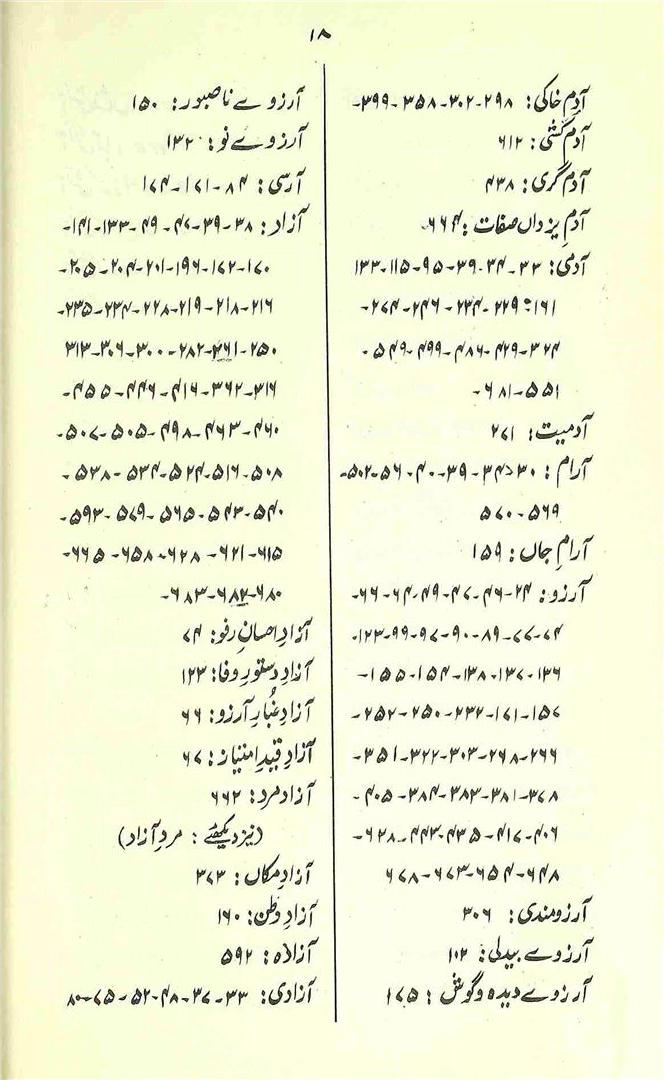 ۱۸
آدمِ خاکی: ۲۹۸-۳۰۲-۳۵۸-۳۹۹-
آدم کُشی: ۶۱۲
آدم گری: ۴۳۸
آدمِ یزداں صفات: ۶۶۴-
آدمی: ۳۳-۳۴-۳۹-۹۵-۱۱۵-۱۳۳
۱۶۱-۲۲۹-۲۳۴-۲۴۶-۲۷۴-
۳۲۴-۴۲۹-۴۸۶-۴۹۹-۵۴۹-
۵۵۱-۶۸۱-
آدمیت: ۲۷۱
آرام: ۳۰-۳۴-۳۹-۴۰-۵۶-۵۰۲-
۵۶۹-۵۷۰
آرامِ جاں: ۱۵۹
آرزو: ۲۴-۴۶-۴۷-۴۹-۶۴-۶۶-
۷۴-۷۷-۸۹-۹۰-۹۷-۹۹-۱۲۳-
۱۳۶-۱۳۷-۱۳۸-۱۵۴-۱۵۵-
۱۵۷-۱۷۱-۲۳۲-۲۵۰-۲۵۲-
۲۶۶-۲۶۸-۳۰۳-۳۲۲-۳۵۱-
۳۷۸-۳۸۱-۳۸۳-۳۸۴-۴۰۵-
۴۰۶-۴۱۷-۴۳۵-۴۴۳-۶۲۸-
۶۴۸-۶۵۴-۶۷۳-۶۷۸
آرزومندی: ۳۰۶
آرزوے بیدلی: ۱۰۲
آرزوے دیدہ و گوش: ۱۷۵
آرزوے ناصبور: ۱۵۰
آرزوے نو: ۱۳۲
آرسی: ۸۴-۱۷۱-۱۷۴
آزاد: ۳۸-۳۹-۴۷-۴۹-۱۳۳-۱۴۱-
۱۷۰-۱۷۲-۱۹۶-۲۰۱-۲۰۴-۲۰۵-
۲۱۶-۲۱۸-۲۱۹-۲۲۸-۲۳۴-۲۳۵-
۲۵۰-۲۶۱-۲۸۲-۳۰۰-۳۰۶-۳۱۳
۳۱۶-۳۶۲-۴۱۶-۴۴۶-۴۵۵-
۴۶۰-۴۶۳-۴۹۸-۵۰۵-۵۰۷-
۵۰۸-۵۱۶-۵۲۴-۵۳۴-۵۳۸-
۵۴۰-۵۴۳-۵۶۵-۵۷۹-۵۹۳-
۶۱۵-۶۲۱-۶۲۸-۶۵۸-۶۶۵-
۶۸۰-۶۸۲-۶۸۳-
آزادِ احسانِ رفو: ۷۴
آزادِ دستورِ وفا: ۱۲۳
آزادِ غبارِ آرزو: ۶۶
آزادِ قیدِ امتیاز: ۶۷
آزاد مرد: ۶۶۲
(نیز دیکھئے: مردِ آزاد)
آزادِ مکاں: ۳۷۳
آزادِ وطن: ۱۶۰
آزادہ: ۵۹۲
آزادی: ۳۳-۳۷-۴۸-۵۲-۷۵-۸۰